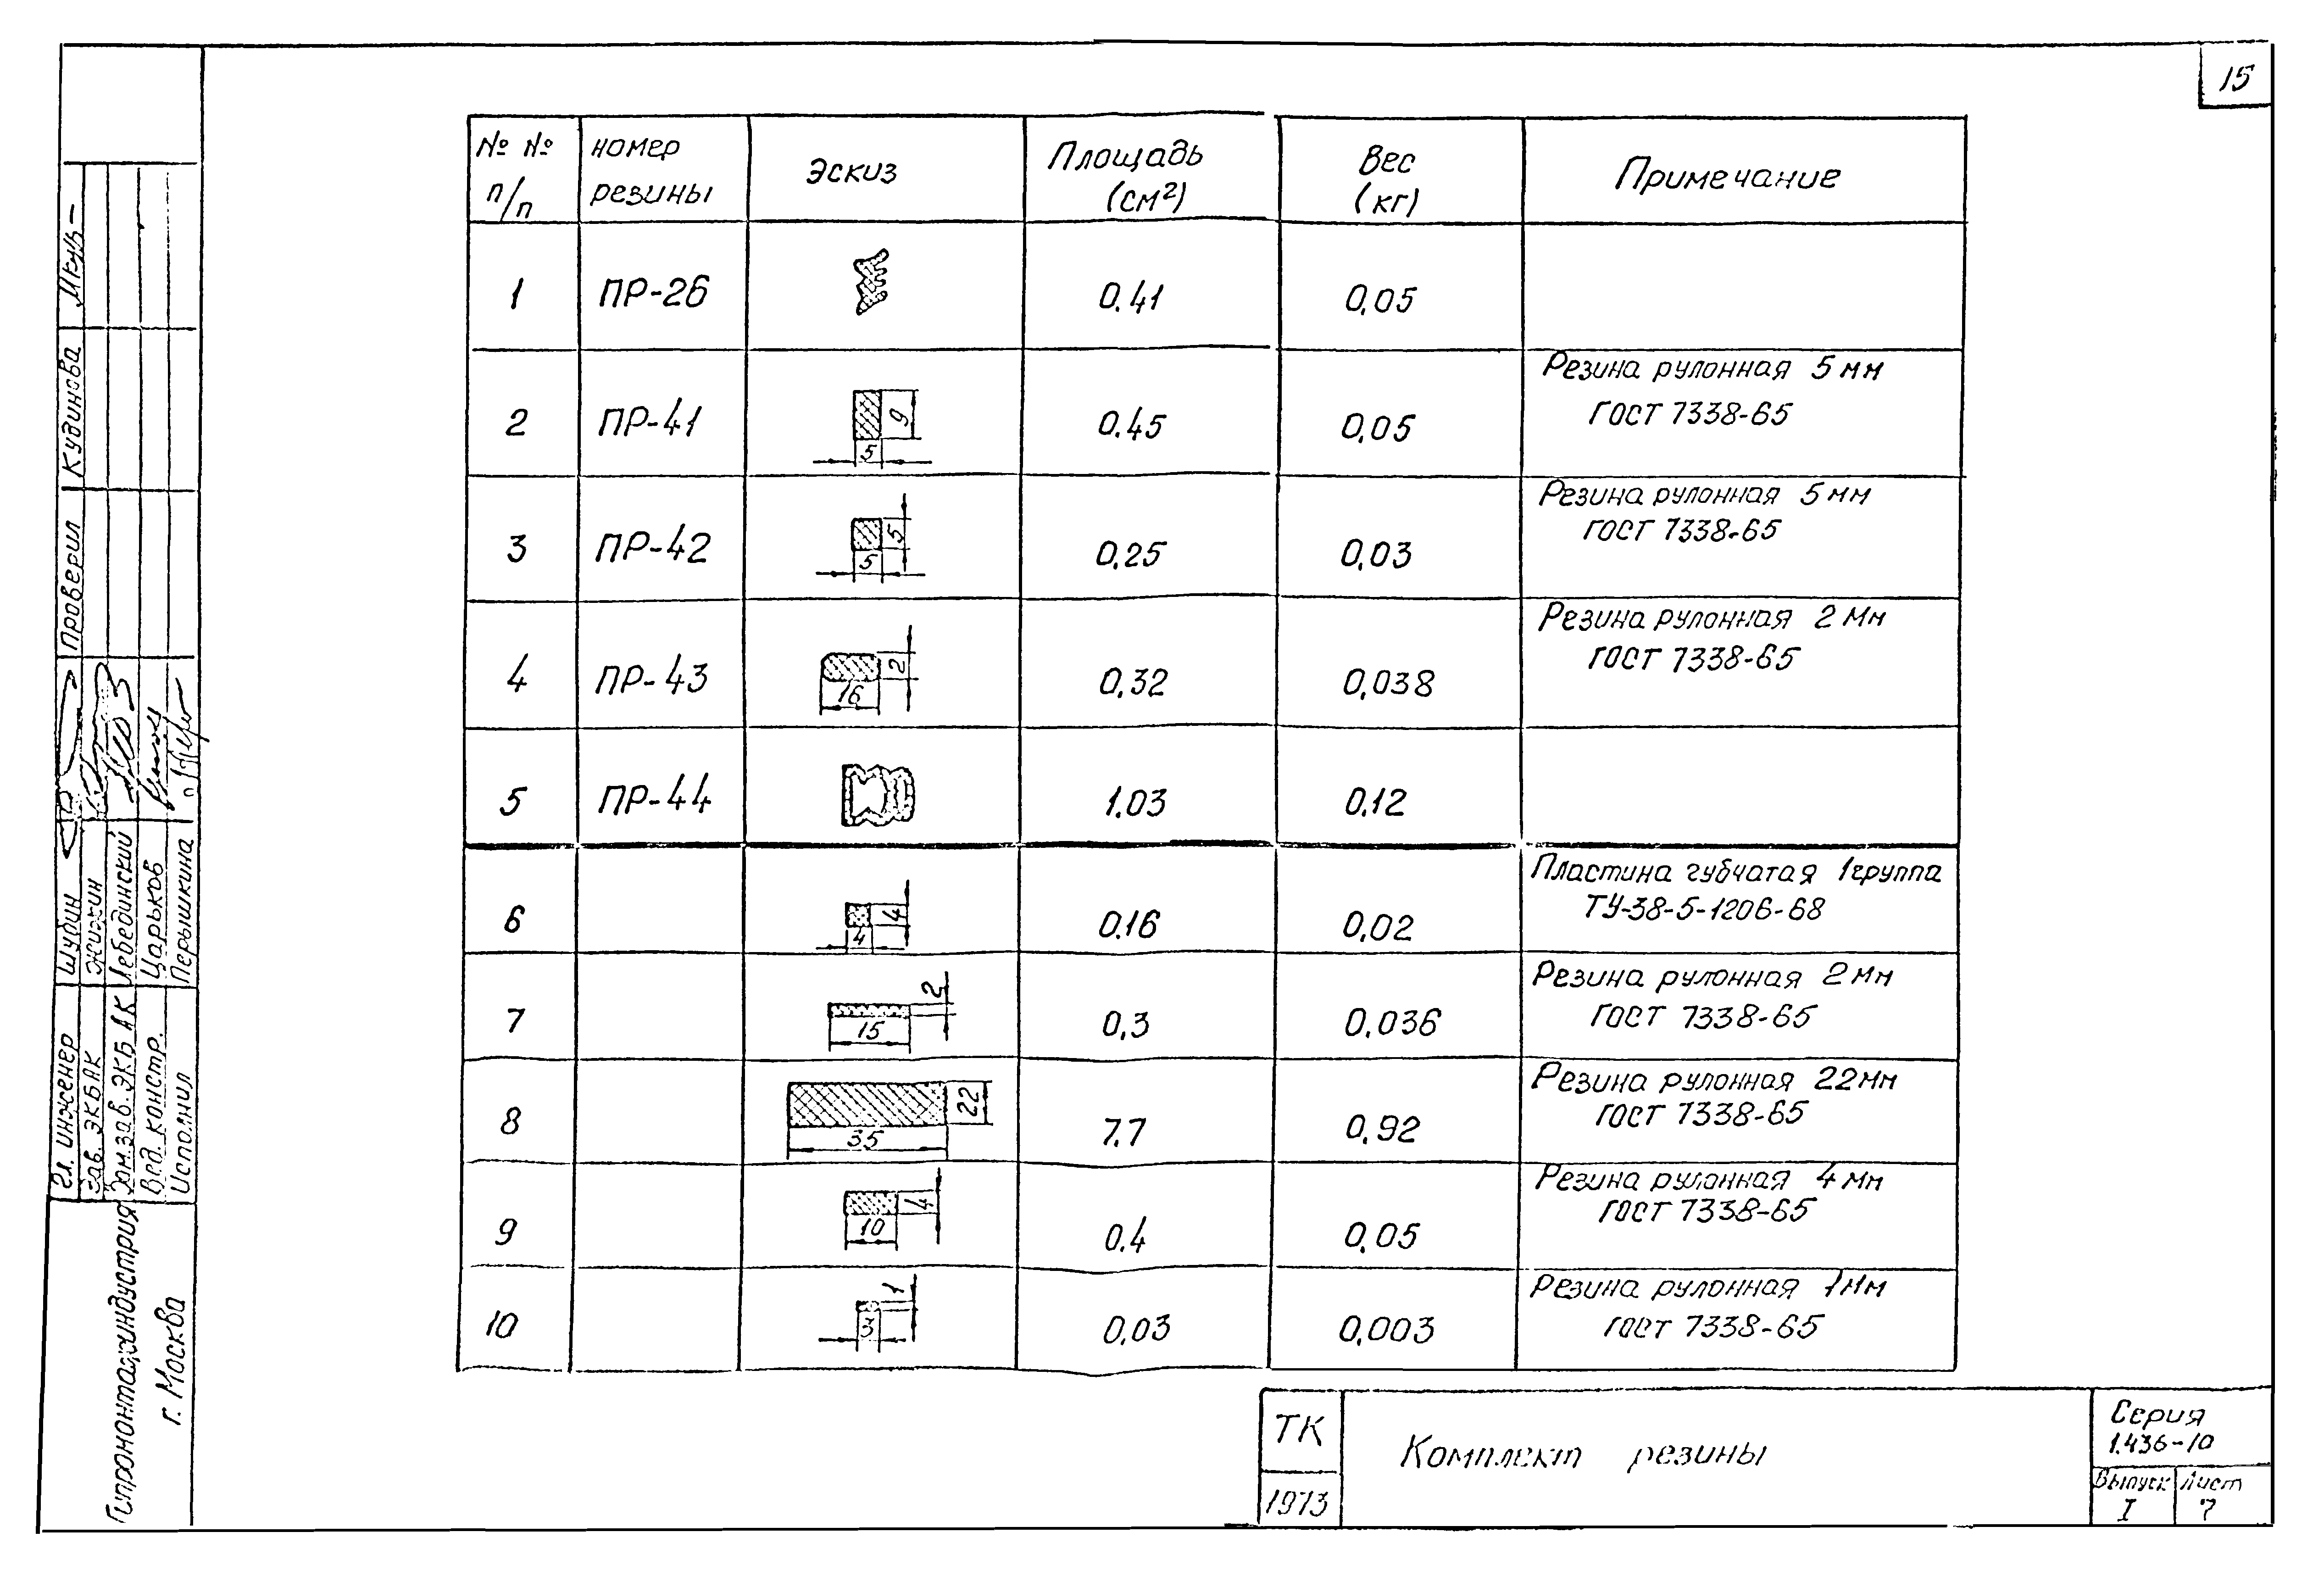 15
№ №
п/п
номер
резины
Эскиз
Площадь
(см²)
Вес
(кг)
Примечание
1
ПР-26
0.41
0,05
2
ПР-41
9
5
0.45
0,05
Резина рулонная 5 мм
ГОСТ 7338-65
3
ПР-42
5
5
0.25
0,03
Резина рулонная 5 мм
ГОСТ 7338-65
4
ПР-43
2
16
0.32
0,038
Резина рулонная 2 мм
ГОСТ 7338-65
5
ПР-44
1.03
0.12
6
4
4
0.16
0,02
Пластина губчатая 1группа
ТУ-38-5-1206-68
7
2
15
0,3
0,036
Резина рулонная 2 мм
ГОСТ 7338-65
8
22
35
7.7
0,92
Резина рулонная 22 мм
ГОСТ 7338-65
9
4
10
0.4
0,05
Резина рулонная 4 мм
ГОСТ 7338-65
10
1
3
0,03
0,003
Резина рулонная 1 мм
ГОСТ 7338-65
ТК
1973
Комплект резины
Серия
1.436-10
Выпуск
I
Лист
7
Гл. инженер Шубин
Проверил Кудинова
Зав. ЭКБ АК Жижин
Зам.зав. ЭКБ АК Лебединский
Вед. констр. Царьков
Исполнил Перышкина
Гипромонтажиндустрия
г. Москва